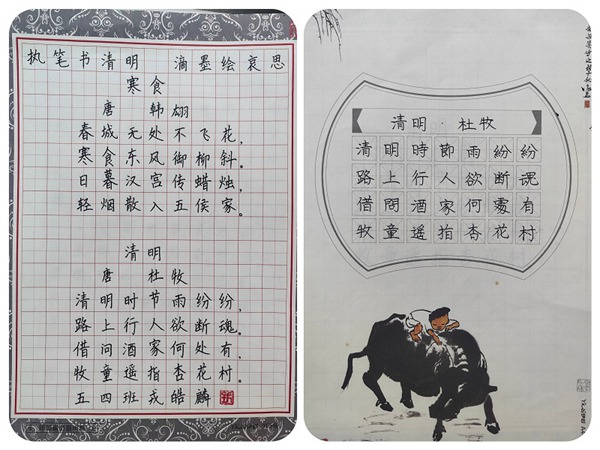 执笔书清明 滴墨绘哀思
寒食
唐 韩翃
春城无处不飞花，
寒食东风御柳斜。
日暮汉宫传蜡烛，
轻烟散入五侯家。
清明
唐 杜牧
清明时节雨纷纷，
路上行人欲断魂。
借问酒家何处有，
牧童遥指杏花村。
五四班戎皓麟
清明·杜牧
清明時節雨紛紛
路上行人欲断魂
借問酒家何處有
牧童遥指杏花村